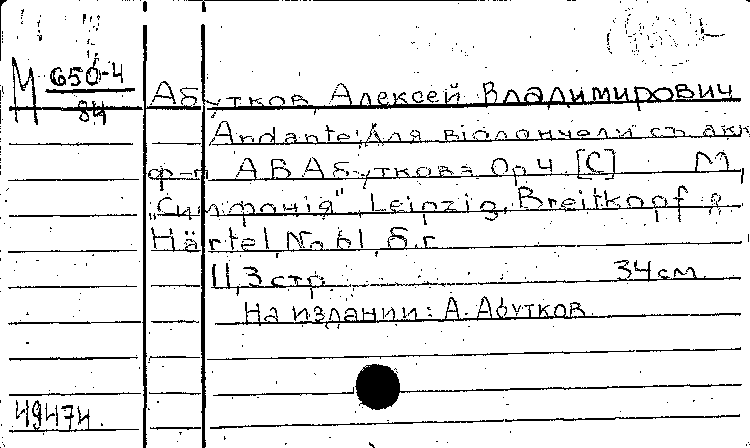 М 650-4
84
Абутков, Алексей Владимирович
Andante; Для віолончели съ акк
ф-п. А.В.Абуткова Op 4. [С] М,
„Симфонія", Leipzig, Breitkopf &
Härtel, No 61, б.г.
11, 3 стр 34 см.
На издании: А. Абутков.
49474.